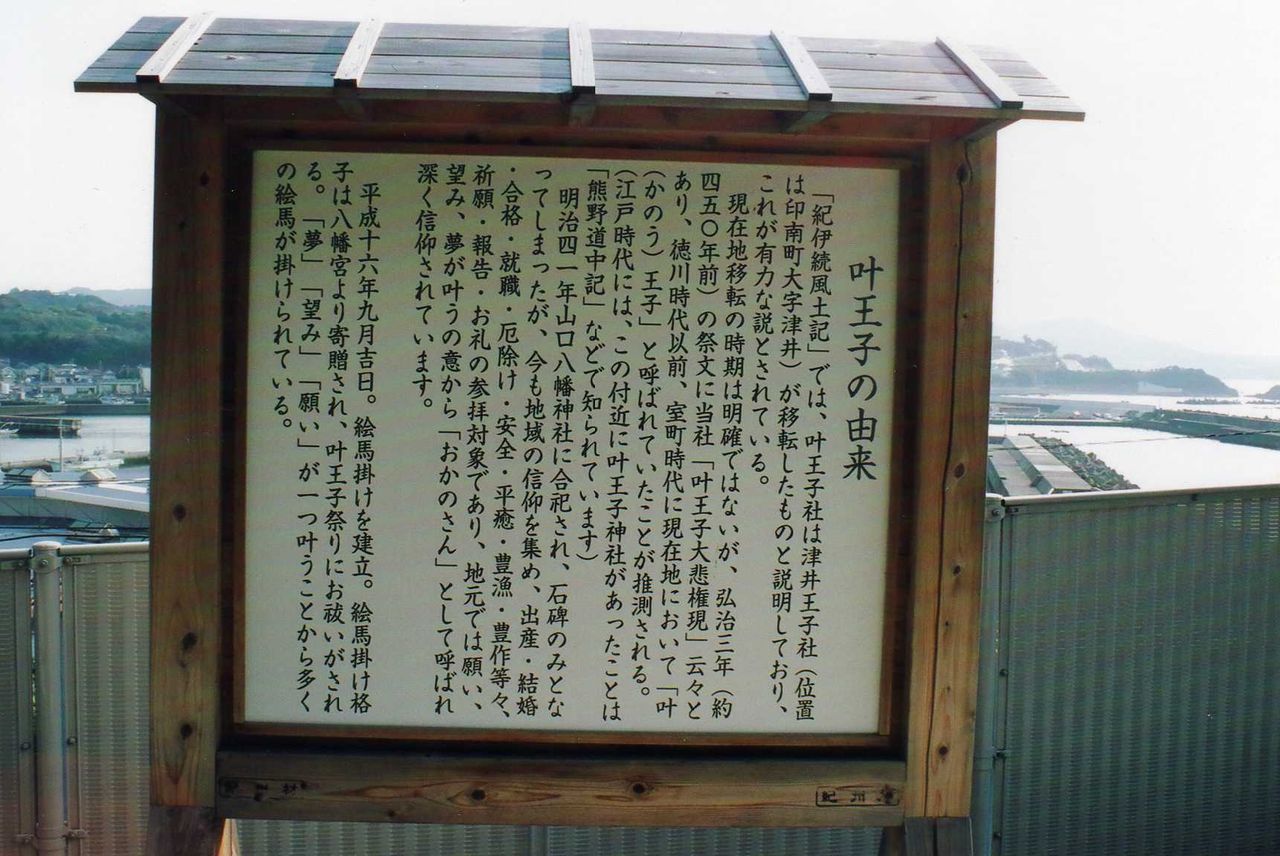 叶王子の由来
「紀伊続風土記」では、叶王子社は津井王子社（位置
は印南町大字津井）が移転したものと説明しており、
これが有力な説とされている。
現在地移転の時期は明確ではないが、弘治三年（約
四五〇年前）の祭文に当社「叶王子大悲権現」云々と
あり、徳川時代以前、室町時代に現在地において「叶
（かのう）王子」と呼ばれていたことが推測される。
（江戸時代には、この付近に叶王子神社があったことは
「熊野道中記」などで知られています）
明治四一年山口八幡神社に合祀され、石碑のみとな
ってしまったが、今も地域の信仰を集め、出産・結婚
・合格・就職・厄除け・安全・平癒・豊漁・豊作等々、
祈願・報告・お礼の参拝対象であり、地元では願い、
望み、夢が叶うの意から「おかのさん」として呼ばれ
深く信仰されています。
平成十六年九月吉日。絵馬掛けを建立。絵馬掛け格
子は八幡宮より寄贈され、叶王子祭りにお祓いがされ
る。「夢」「望み」「願い」が一つ叶うことから多く
の絵馬が掛けられている。
紀州